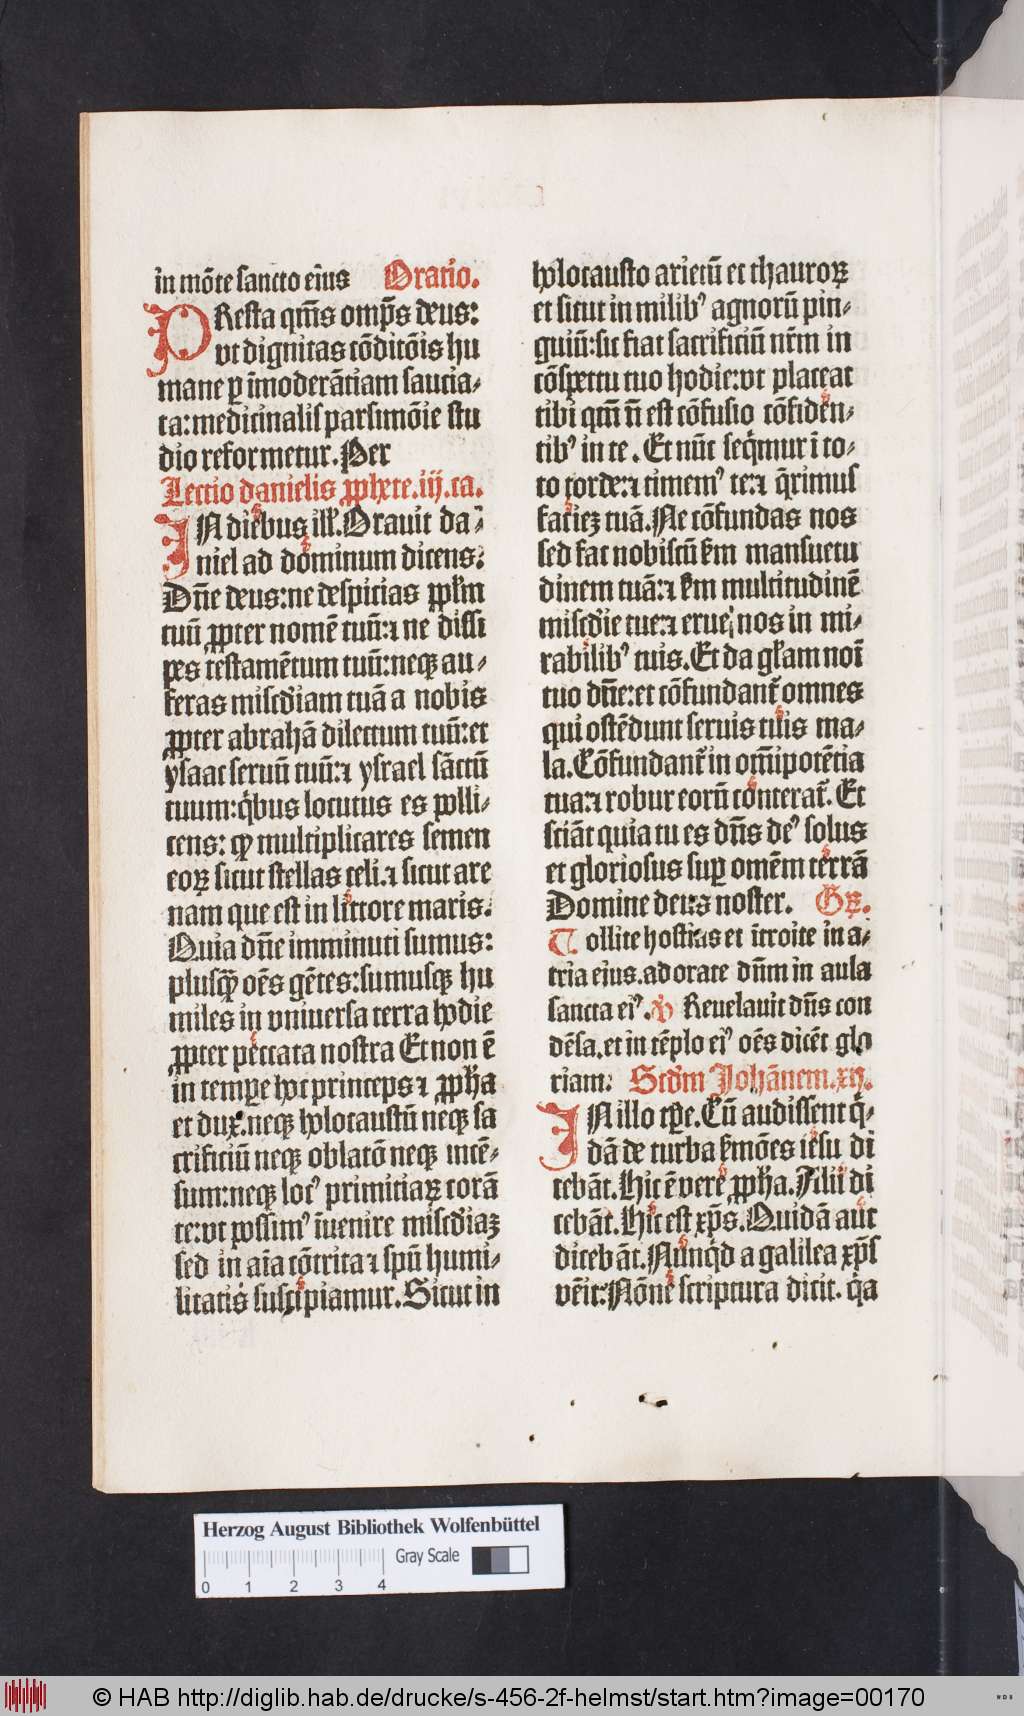 in mōte sancto eiꝰs Oratio.
PResta q̄m̄s omp̄s deus:
vt dignitas cōditōis hu
mane ꝑ īmoderātiam saucia-
ta: medicinalis parsimōie stu
dio reformetur. Per
Lectio danielis ꝓphete. iij. ca.
IN diebus ill'. Orauit da-
niel ad dominum dicens:
Dn̄e deus: ne despicias ꝓpl'm
tuū ꝓpter nomē tuū: ⁊ ne dissi
pes testamētum tuū: neqꝫ au-
feras misc̄diam tuā a nobis
ꝓpter abrahā dilectum tuū: et
ysaac seruū tuū: ⁊ ysrael sāctū
tuum: q̇bus locutus es polli-
cens: ꝙ multiplicares semen
eoꝝ sicut stellas celi. ⁊ sicut are
nam que est in littore maris.
Quia dn̄e imminuti sumus:
plusꝙ̄ oēs gētes: sumusqꝫ hu
miles in vniuersa terra hodie
ꝓpter peccata nostra Et non ē
in tempe hoc princeps ⁊ ꝓph̄a
et dux. neqꝫ holocaustū neqꝫ sa
crificiū neqꝫ oblatō neqꝫ incē-
sum: neqꝫ locꝰ primitiaꝝ corā
te: vt possimꝰ īuenire misc̄diaꝫ
sed in aīa cōtrita ⁊ spū humi-
litatis suscipiamur. Sicut in
holocausto arietū et thauroꝝ
et sicut in milibꝰ agnorū pin-
guiū: sic fiat sacrificiū nr̄m in
cōspectu tuo hodie: vt placeat
tibi qm̄ n̄ est cōfusio cōfiden-
tibꝰ in te. Et nūc seq̇mur ī to-
to corde: ⁊ timemꝰ te: ⁊ q̄rimus
facieꝫ tuā. Ne cōfundas nos
sed fac nobiscū km̄ mansuetu
dinem tuā: ⁊ km̄ multitudinē
misc̄die tue: ⁊ erue nos in mi-
rabilibꝰ tuis. Et da gl'am noī
tuo dn̄e: et cōfundant̄ omnes
qui ostēdunt seruis tuis ma-
la. Cōfundant̄ in om̄ipotētia
tua: ⁊ robur eorū conterat̄. Et
sciāt quia tu es dn̄s deꝰ solus
et gloriosus sup omēm terrā
Domine deus noster. Gꝝ.
Tollite hostias et ītroite in a-
tria eius. adorate dn̄m in aula
sancta eiꝰ. ꝟ Reuelauit dn̄s con
dēsa. et in tēplo eiꝰ oēs dicēt glo
riam: Scd̄m Johānem. xij.
IN illo tp̄e. Cū audissent q̇-
dā de turba k̄mōes iesu di
cebāt. Hic ē vere ꝓph̄a. Alii di
cebāt. Hic est xp̄s. Quidā aūt
dicebāt. Nūnqd a galilea xp̄s
vēit: Nōne scriptura dicit. q̇a
Herzog August Bibliothek Wolfenbüttel
Gray Scale
0 1 2 3 4
© HAB http://diglib.hab.de/drucke/s-456-2f-helmst/start.htm?image=00170